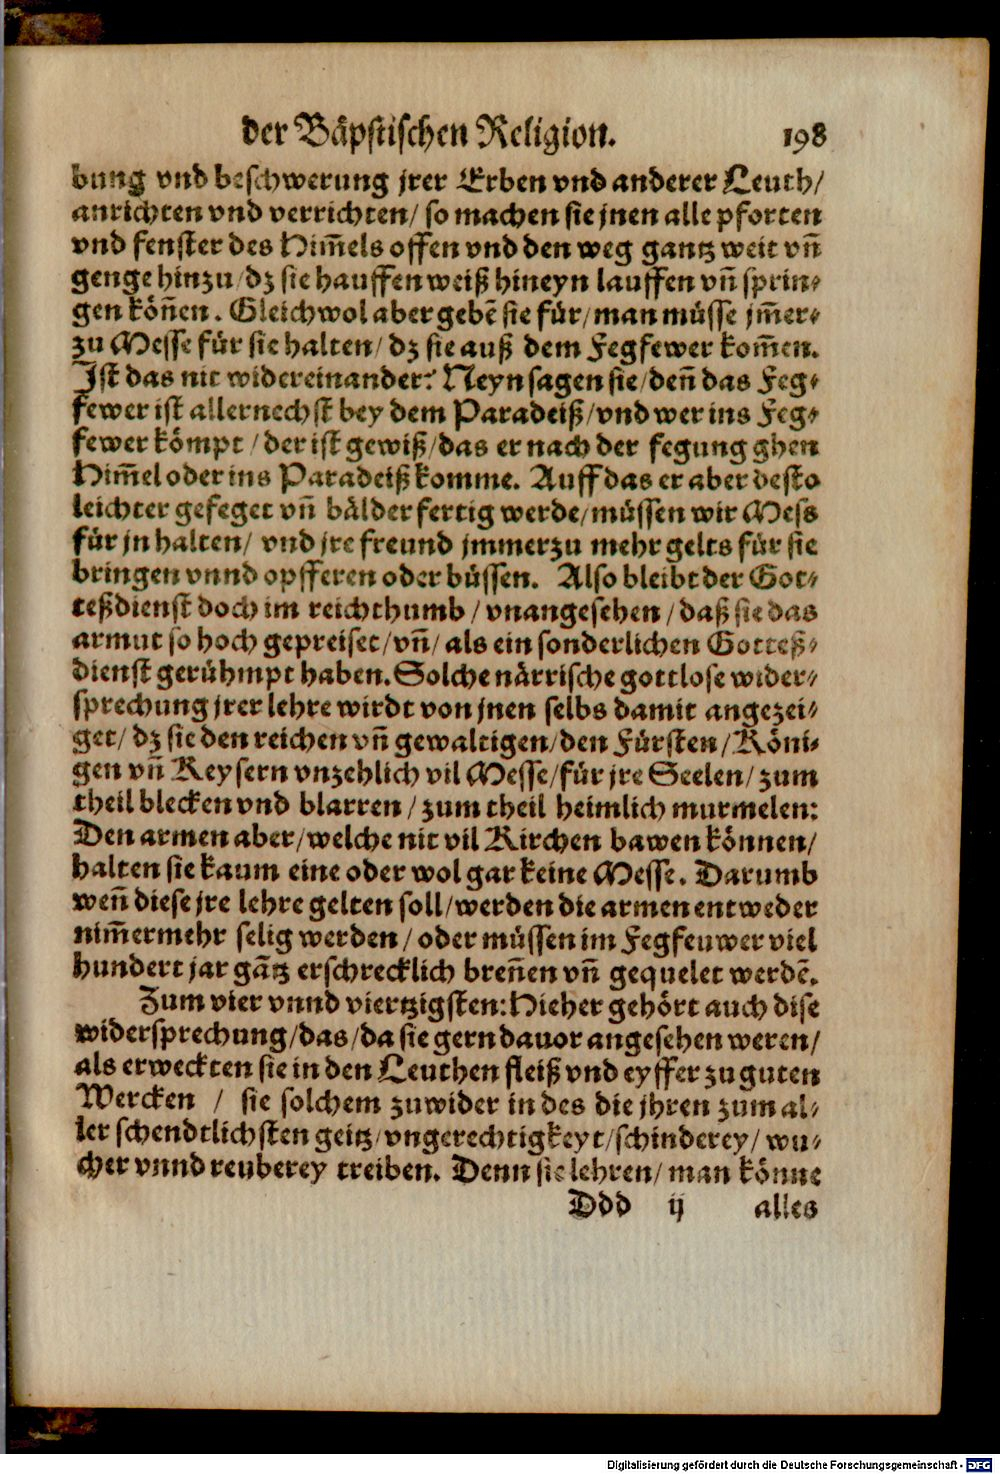 der Bäpstischen Religion. 198
bung vnd beschwerung jrer Erben vnd anderer Leuth/
anrichten vnd verrichten/ so machen sie jnen alle pforten
vnd fenster des Him̃els offen vnd den weg gantz weit vñ
genge hinzu/dz sie hauffen weiß hineyn lauffen vñ sprin-
gen köñen. Gleichwol aber gebẽ sie für/man müsse jm̃er-
zu Messe für sie halten/ dz sie auß dem Fegfewer kom̃en.
Ist das nit widereinander? Neyn sagen sie/deñ das Feg-
fewer ist allernechst bey dem Paradeiß/vnd wer ins Feg-
fewer kömpt /der ist gewiß/das er nach der fegung ghen
Him̃el oder ins Paradeiß komme. Auff das er aber desto
leichter gefeget vñ bälder fertig werde/müssen wir Mess
für jn halten/ vnd jre freund jmmerzu mehr gelts für sie
bringen vnnd opfferen oder büssen. Also bleibt der Got-
teßdienst doch im reichthumb /vnangesehen/daß sie das
armut so hoch gepreiset/vñ/ als ein sonderlichen Gotteß-
dienst gerühmpt haben. Solche närrische gottlose wider-
sprechung jrer lehre wirdt von jnen selbs damit angezei-
get/ dz sie den reichen vñ gewaltigen/den Fürsten/Köni-
gen vñ Keysern vnzehlich vil Messe/für jre Seelen/zum
theil blecken vnd blarren /zum theil heimlich murmelen:
Den armen aber/welche nit vil Kirchen bawen können/
halten sie kaum eine oder wol gar keine Messe. Darumb
weñ diese jre lehre gelten soll/werden die armen entweder
nim̃ermehr selig werden /oder müssen im Fegfeuwer viel
hundert jar gãtz erschrecklich breñen vñ gequelet werdẽ.
Zum vier vnnd viertzigsten: Hieher gehört auch dise
widersprechung/das/da sie gern dauor angesehen weren/
als erweckten sie in den Leuthen fleiß vnd eyffer zu guten
Wercken / sie solchem zuwider in des die jhren zum al-
ler schendtlichsten geitz/vngerechtigkeyt/schinderey/ wu-
cher vnnd reuberey treiben. Denn sie lehren/man könne
Ddd ij alles
Digitalisierung gefördert durch die Deutsche Forschungsgemeinschaft - DFG